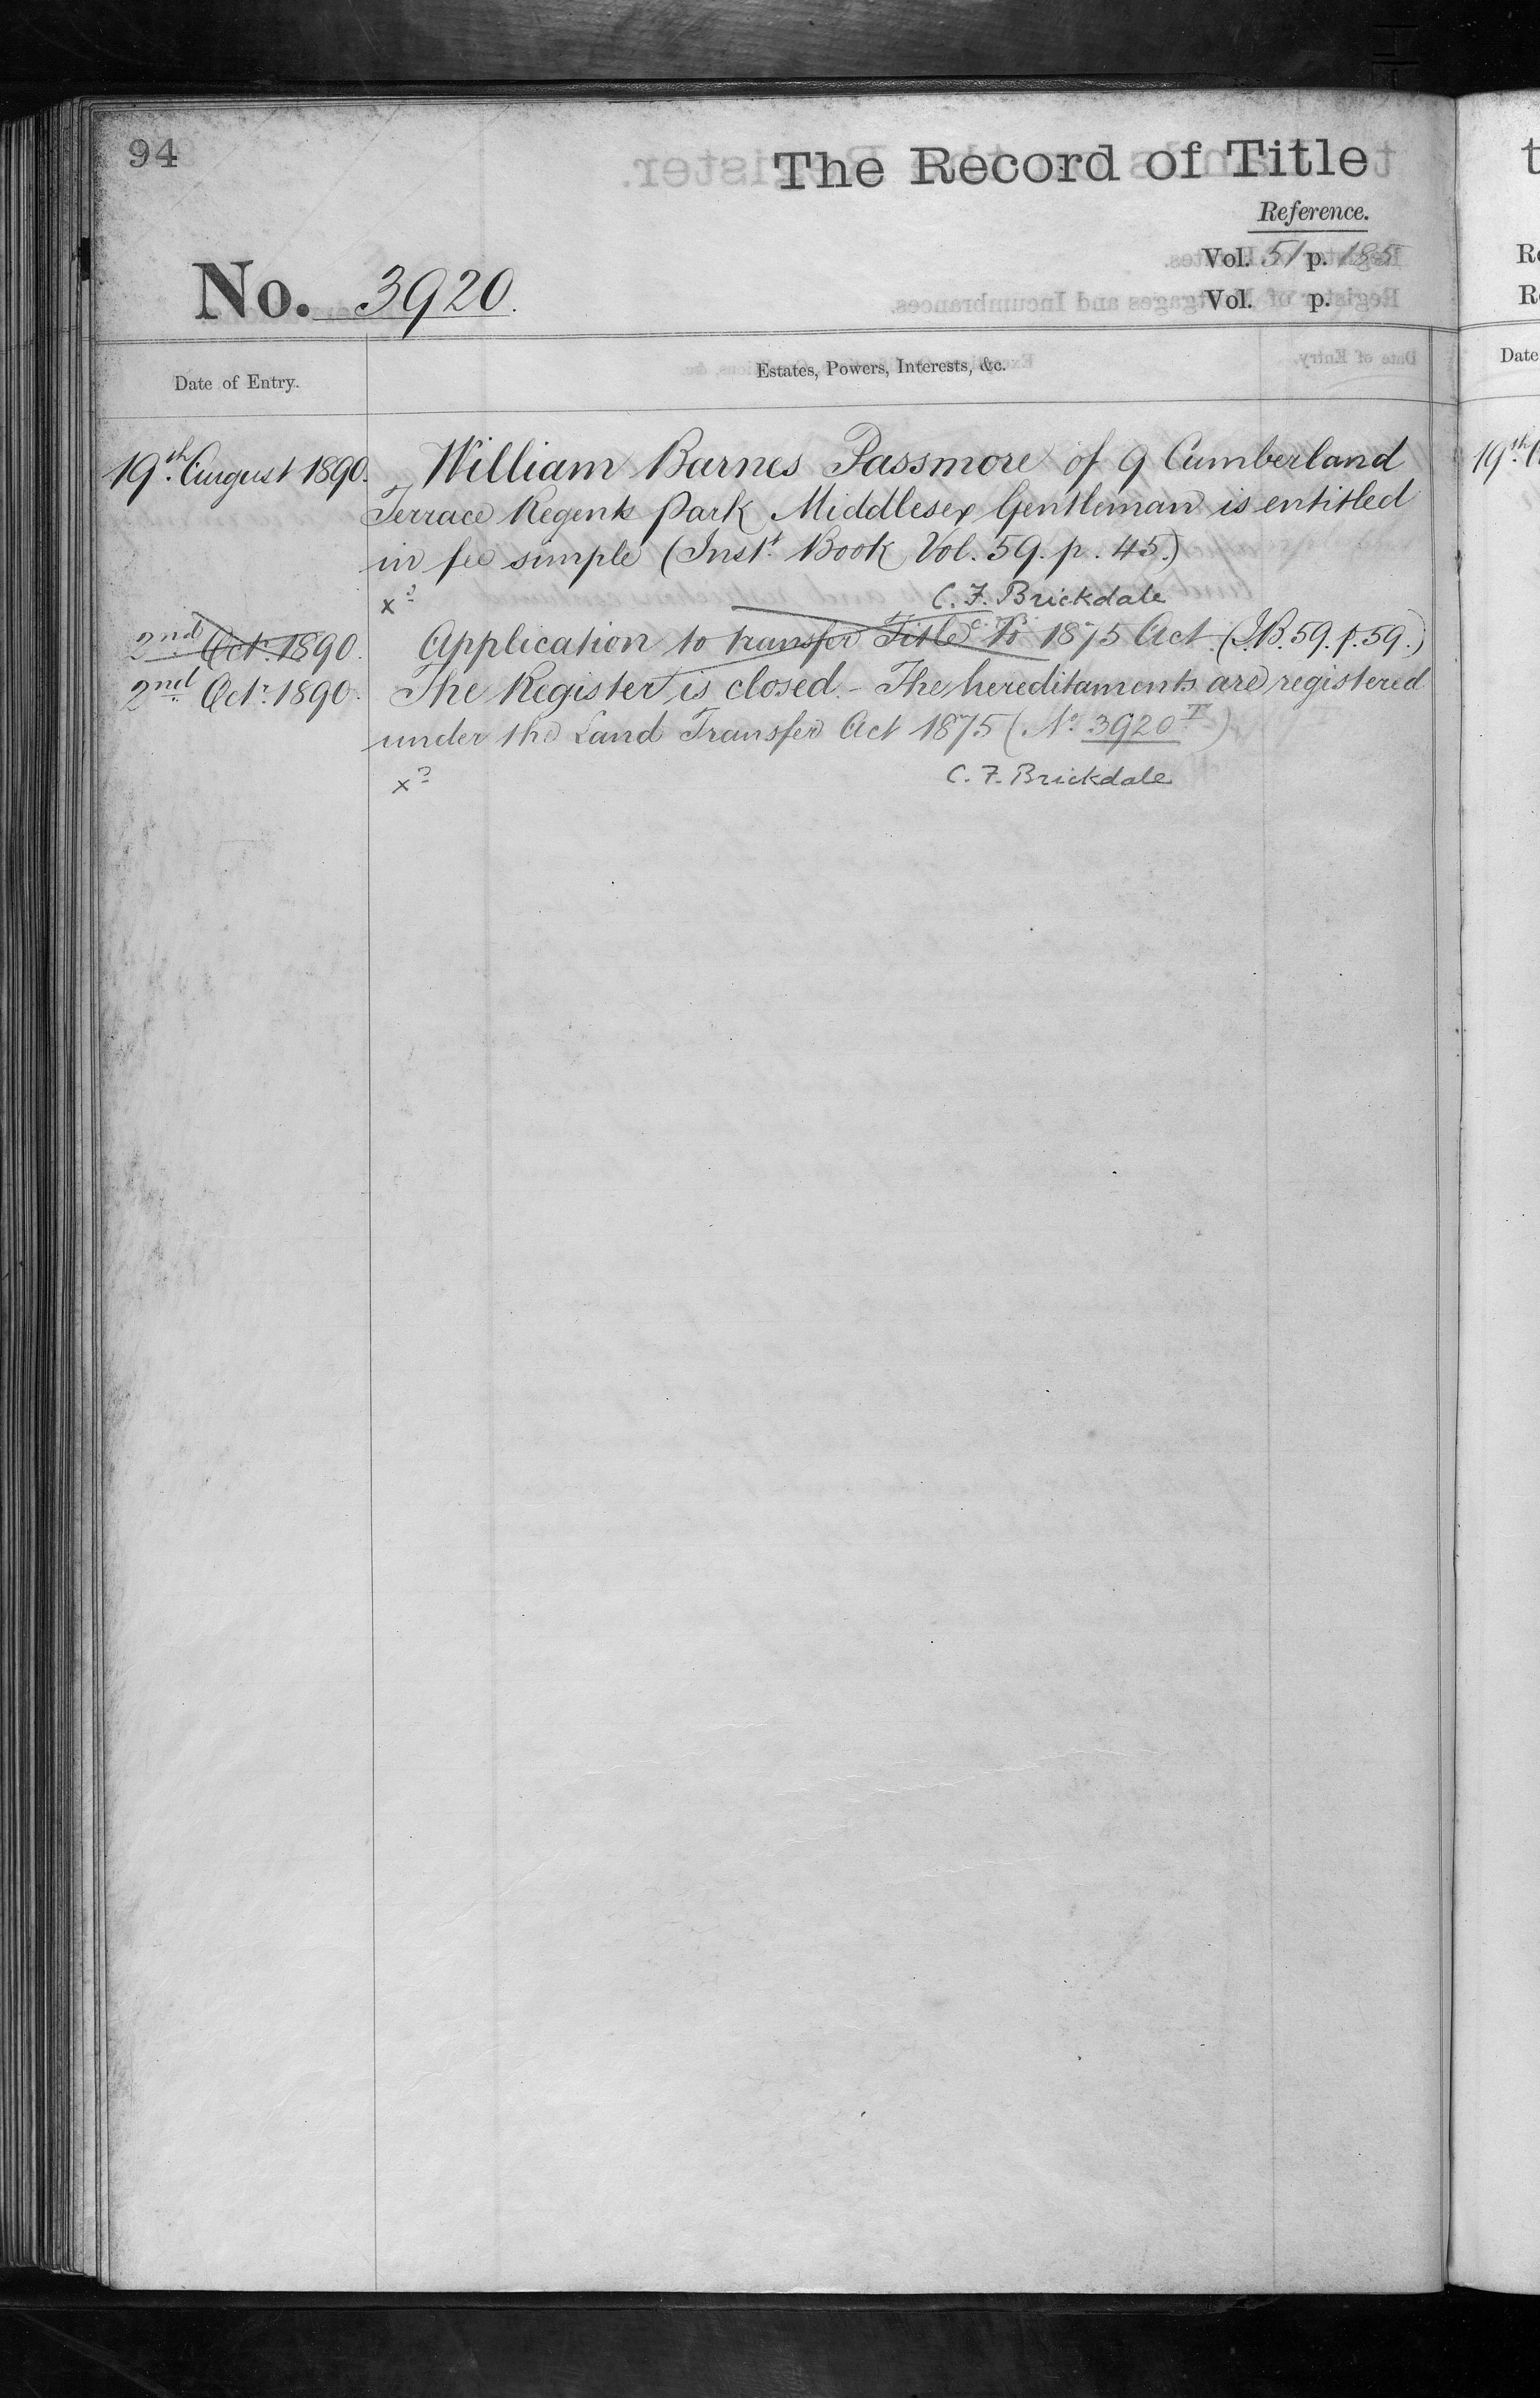 94
The Record of Title
Reference.
Vol. 51 p. 185
Vol. p.
No. 3920.
Date of Entry.
Estates, Powers, Interests, &c.
19th August 1890. William Barnes Passmore of 9 Cumberland
Terrace Regents Park Middlesex Gentleman is entitled
in fee simple (Inst. Book Vol. 59. p. 45.)
C. F. Brickdale
2nd Octr. 1890. Application to transfer Title to 1875 Act. (I.B. 59. p. 59.)
2nd Octr. 1890. The Register is closed. - The hereditaments are registered
under the Land Transfer Act 1875 (No. 3920 T)
C. F. Brickdale
t
Date
19th